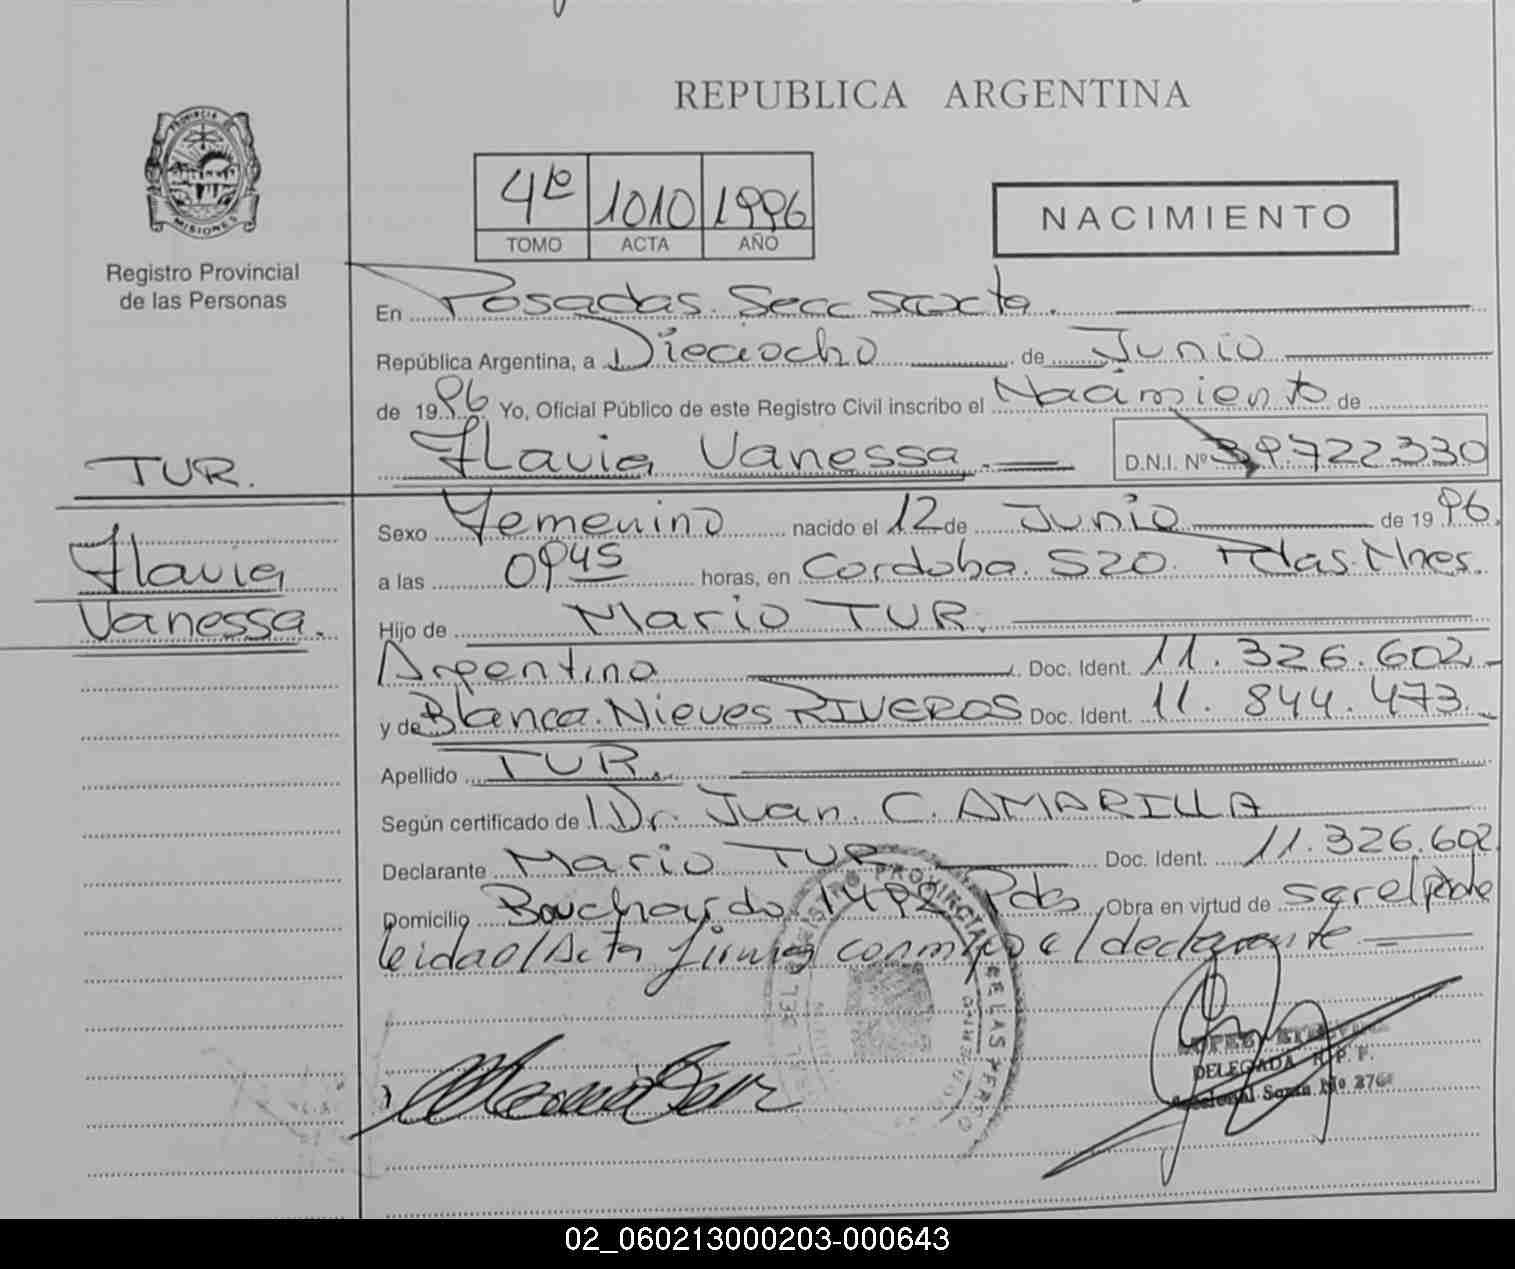 REPUBLICA ARGENTINA
PROVINCIA DE
MISIONES
Registro Provincial
de las Personas
4to 1010 1996
TOMO ACTA AÑO
NACIMIENTO
En Posadas. Secc Sexta.
República Argentina, a Dieciocho de Junio
de 1996 Yo, Oficial Público de este Registro Civil inscribo el Nacimiento de
Flavia Vanessa. D.N.I. Nº 39722330
TUR.
Flavia
Vanessa.
Sexo Femenino nacido el 12 de Junio de 1996.
a las 0945 horas, en Cordoba. 520. Pdas. Mnes.
Hijo de Mario TUR.
Argentino Doc. Ident. 11.326.602
y de Blanca. Nieves RIVEROS Doc. Ident. 11.844.473.
Apellido TUR.
Según certificado de Dr. Juan. C. AMARILLA
Declarante Mario TUR Doc. Ident. 11.326.602
Domicilio Bouchardo 1492 Pdas Obra en virtud de ser el padre
leida e/Acta firma conmigo e/declarante
REGISTRO PROVINCIAL DE LAS PERSO
DELEGADA R.P.P.
Seccional Sexta
02_060213000203-000643